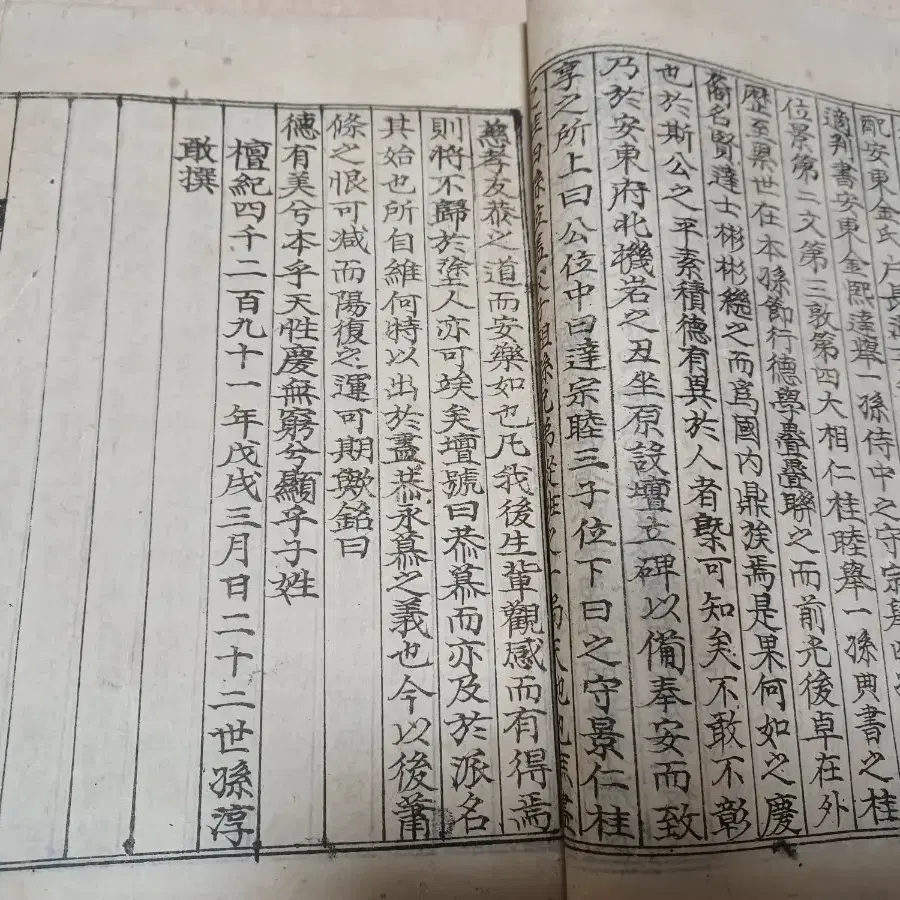 配安東金氏戶長
適判書安東金熙達舉一孫侍中之守宗
位景第二文第三敦第四大相仁桂睦舉一孫典書之桂
歷至累世在本孫節行德學疊疊聯之而前光後卓在外
裔名賢達士彬彬繼之而爲國內鼎族焉是果何如之慶
也於斯公之平素積德有異於人者槩可知矣不敢不彰
乃於安東府北機岩之丑坐原設壇立碑以備奉安而致
享之所上曰公位中曰達宗睦三子位下曰之守景仁桂
慈孝友恭之道而安樂如也凡我後生輩觀感而有得焉
則將不歸於塗人亦可竢矣壇號曰恭慕而亦及於派名
其始也所自維何特以出於盡恭永慕之義也今以後蕭
條之恨可減而陽復之運可期歟銘曰
德有美兮本乎天性慶無窮兮顯乎子姓
檀紀四千二百九十一年戊戌三月日二十二世孫淳
敢撰